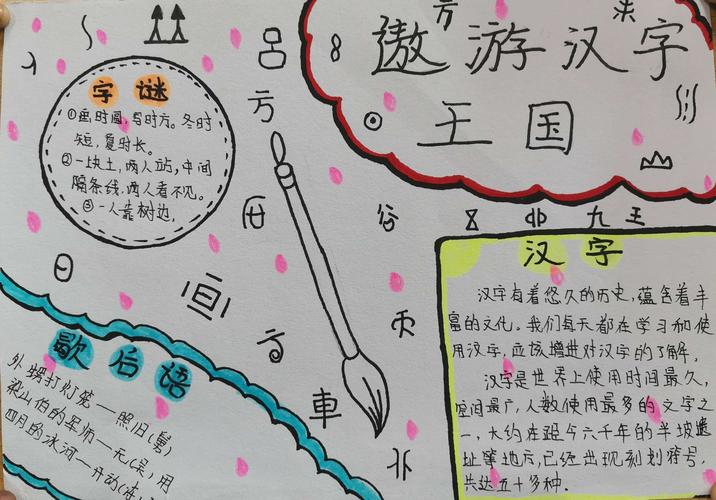 遨游汉字
王国
字谜
①画时圆,写时方。冬时
短,夏时长。
②一块土,两人站,中间
隔条线,两人看不见。
③一人靠树边,
汉字
汉字有着悠久的历史,蕴含着丰
富的文化。我们每天都在学习和使
用汉字,应该增进对汉字的了解,
汉字是世界上使用时间最久,
空间最广,人数使用最多的文字之
一,大约在距今六千年的半坡遗
址等地方,已经出现刻划符号,
共达五十多种.
歇后语
外甥打灯笼一照旧(舅)
梁山伯的军师一无(吴)用
四月的冰河一开动(冻)
方
吕
日
方
車
九
王